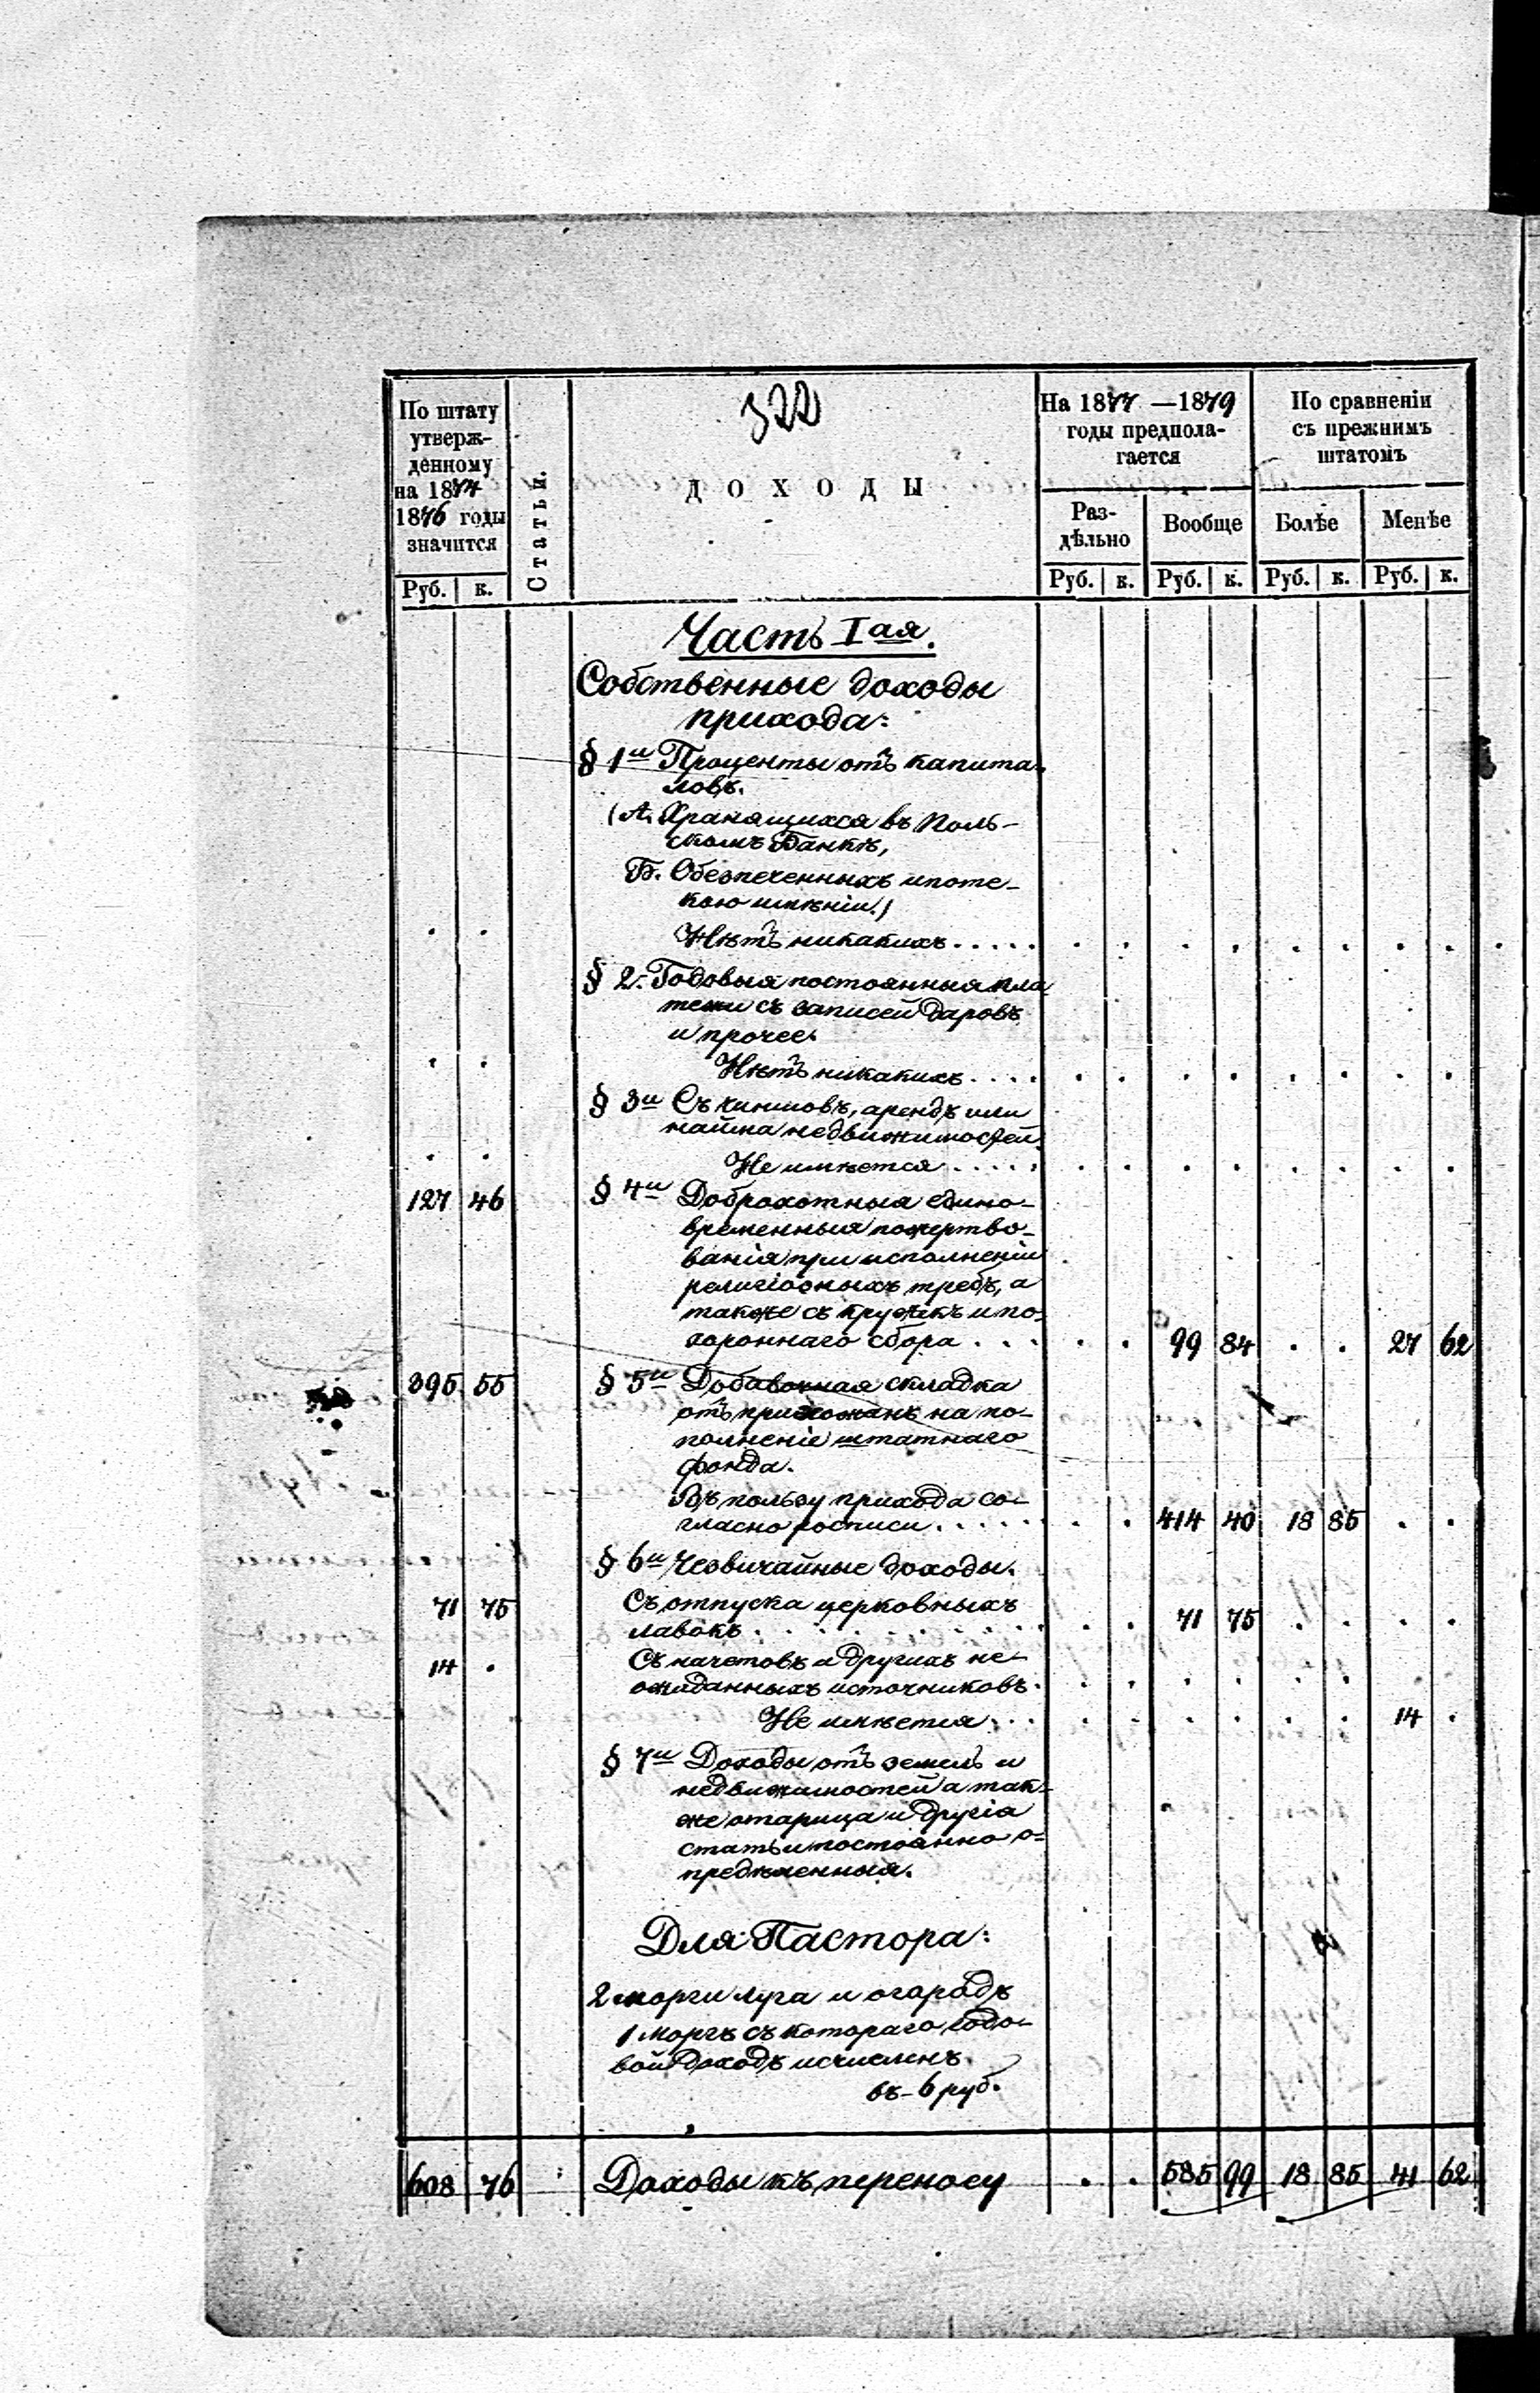 322
По штату
утверж-
денному
на 1874
1876 годы
значится
Руб. к.
Статьи.
ДОХОДЫ
На 1877 —1879
годы предпола-
гается
Раз-
дѣльно
Вообще
Руб. к. Руб. к.
По сравненіи
съ прежнимъ
штатомъ
Болѣе Менѣе
Руб. к. Руб. к.
Часть Iая.
Собственные доходы
прихода:
§ 1й Проценты отъ капита-
ловъ.
(А. Хранящихся въ Поль-
скомъ Банкѣ,
Б. Обезпеченныхъ ипоте-
кою имѣніи.)
Нѣтъ никакихъ.....
§ 2. Годовыя постоянныя пла-
тежи съ записей даровъ
и прочее.
Нѣтъ никакихъ....
§ 3й Съ киншовъ, арендъ или
найма недвижимостей.
Не имѣется.....
127 46 § 4й Доброхотныя едино-
временныя пожертво-
ванія при исполненіи
религіозныхъ требъ, а
также съ кружекъ и по-
хороннаго сбора... 99 84 27 62
395 55 § 5й Добавочная складка
отъ прихожанъ на по-
полненіе штатнаго
фонда.
Въ пользу прихода со-
гласно росписи..... 414 40 18 85
§ 6й Чезвичайные доходы.
71 75 Съ отпуска церковныхъ
лавокъ......... 71 75
14 . Съ начетовъ и другихъ не-
ожиданныхъ источниковъ.
Не имѣется... 14 .
§ 7й Доходы отъ земель и
недвижимостей а так-
же и другія
статьи постоянно о-
предѣленныя.
Для Пастора:
2 морги луга и огародъ
1 моргъ съ котораго годо-
вой доходъ исчисленъ
въ - 6 руб.
608 76 Доходы къ переносу . . 585 99 18 85 41 62